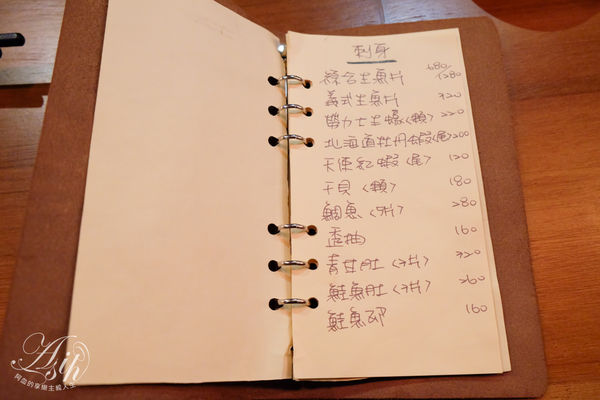 刺身
綜合生魚片 680/1280
義式生魚片 320
勞力士生蠔<顆> 220
北海道牡丹蝦<尾> 200
天使紅蝦<尾> 120
干貝<顆> 180
鯛魚 280
160
青甘肚 320
鮭魚肚 260
鮭魚卵 160
Asih
阿血的享樂主義人生